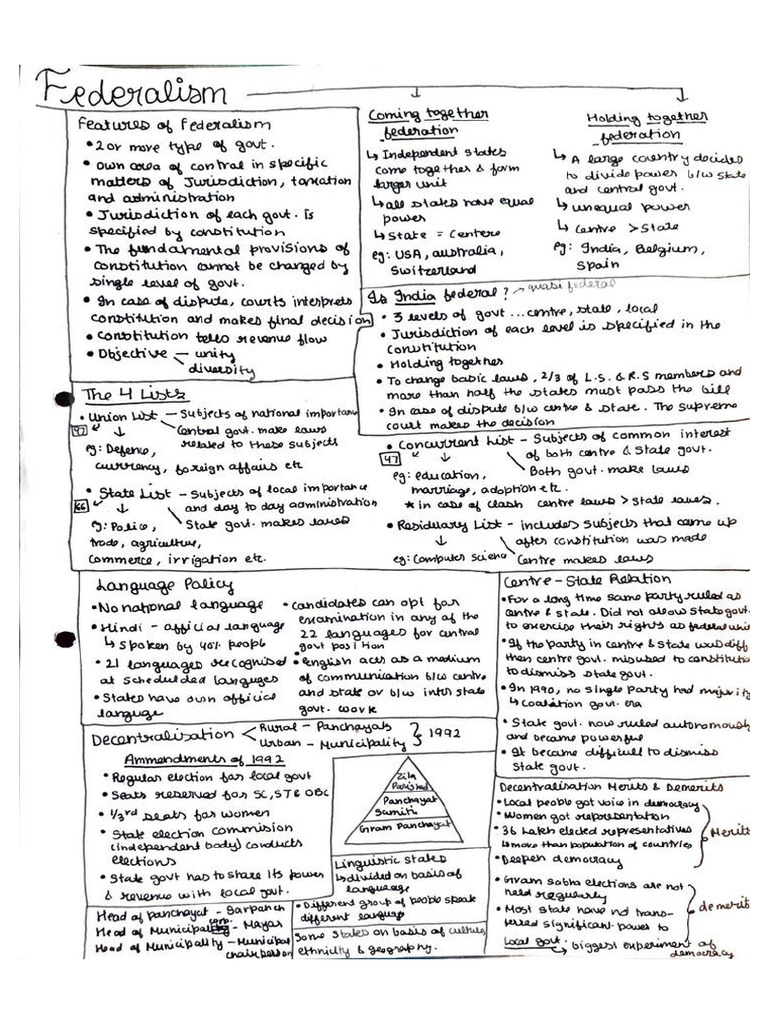 Federalism
Features of Federalism
• 2 or more type of govt.
• own area of control in specific
matters of Jurisdiction, taxation
and administration
• Jurisdiction of each govt. is
specified by constitution
• The fundamental provisions of
constitution cannot be changed by
single level of govt.
• In case of dispute, courts interprets
constitution and makes final decision
• Constitution tells revenue flow
• Objective — unity
diversity
Coming together
federation
↳ Independent states
come together & form
larger unit
↳ all states have equal
power
↳ State = Centere
eg: USA, australia,
Switzerland
Holding together
federation
↳ A large country decides
to divide power b/w state
and central govt.
↳ unequal power
↳ Centre > State
eg: India, Belgium,
Spain
Is India federal? → quasi federal
• 3 levels of govt ... centre, state, local
• Jurisdiction of each level is specified in the
Constitution
• Holding together
• To change basic laws, 2/3 of L.S. & R.S members and
more than half the states must pass the bill
• In case of dispute b/w centre & state. The supreme
court makes the decision
The 4 Lists
• Union List — Subjects of national importance
97 Central govt. make laws
related to these subjects
eg: Defence,
currency, foreign affairs etc
• State List — Subjects of local importance
66 and day to day administration
State govt. makes laws
eg: Police,
trade, agriculture,
commerce, irrigation etc.
• Concurrent List — Subjects of common interest
47 of both centre & State govt.
Both govt. make laws
eg: education,
marriage, adoption etc.
* in case of clash centre laws > State laws.
• Residuary List — includes subjects that came up
after constitution was made
eg: Computer science Centre makes laws
Language Policy
• No national language
• Hindi — official language
↳ spoken by 40% people
• 21 languages recognised
at scheduled languges
• States have own official
languge
• candidates can opt for
examination in any of the
22 languages for central
govt position
• english acts as a medium
of communication b/w centre
and state or b/w inter state
govt. work
Centre - State Relation
• For a long time same party ruled as
centre & state. Did not allow state govt.
to exercise their rights as federal unit
• If the party in centre & State was diff
then centre govt. misused to constitution
to dismiss state govt.
• In 1990, no single party had majority
↳ Coalition govt. era
• State govt. now ruled autonomously
and became powerful
• It became difficult to dismiss
State govt.
Decentralisation < Rural - Panchayats
Urban - Municipality } 1992
Ammendments of 1992
• Regular election for local govt
• Seats reserved for SC, ST & OBC
• 1/3rd seats for women
• State election commision
(independent body) conducts
elections
• State govt has to share its power
& revenue with local govt.
Zila
Parishad
Panchayat
Samiti
Gram Panchayat
Linguistic states
↳ divided on basis of
languageg
• Different group of people speak
different languge
Some states on basis of culture,
ethnicity & geography.
Head of panchayat - Sarpanch
Head of Municipal corp. - Mayar
Head of Municipality - Municipal
chairperson
Decentralisation Merits & Demerits
• Local people got voice in democracy
• Women got representation
• 36 Lakh elected representatives
↳ more than population of countries
• Deepen democracy
Merits
• Gram sabha elections are not
held regularly
• Most state have not trans-
ferred significant power to
Local govt.
demerits
↳ biggest experiment of
democracy